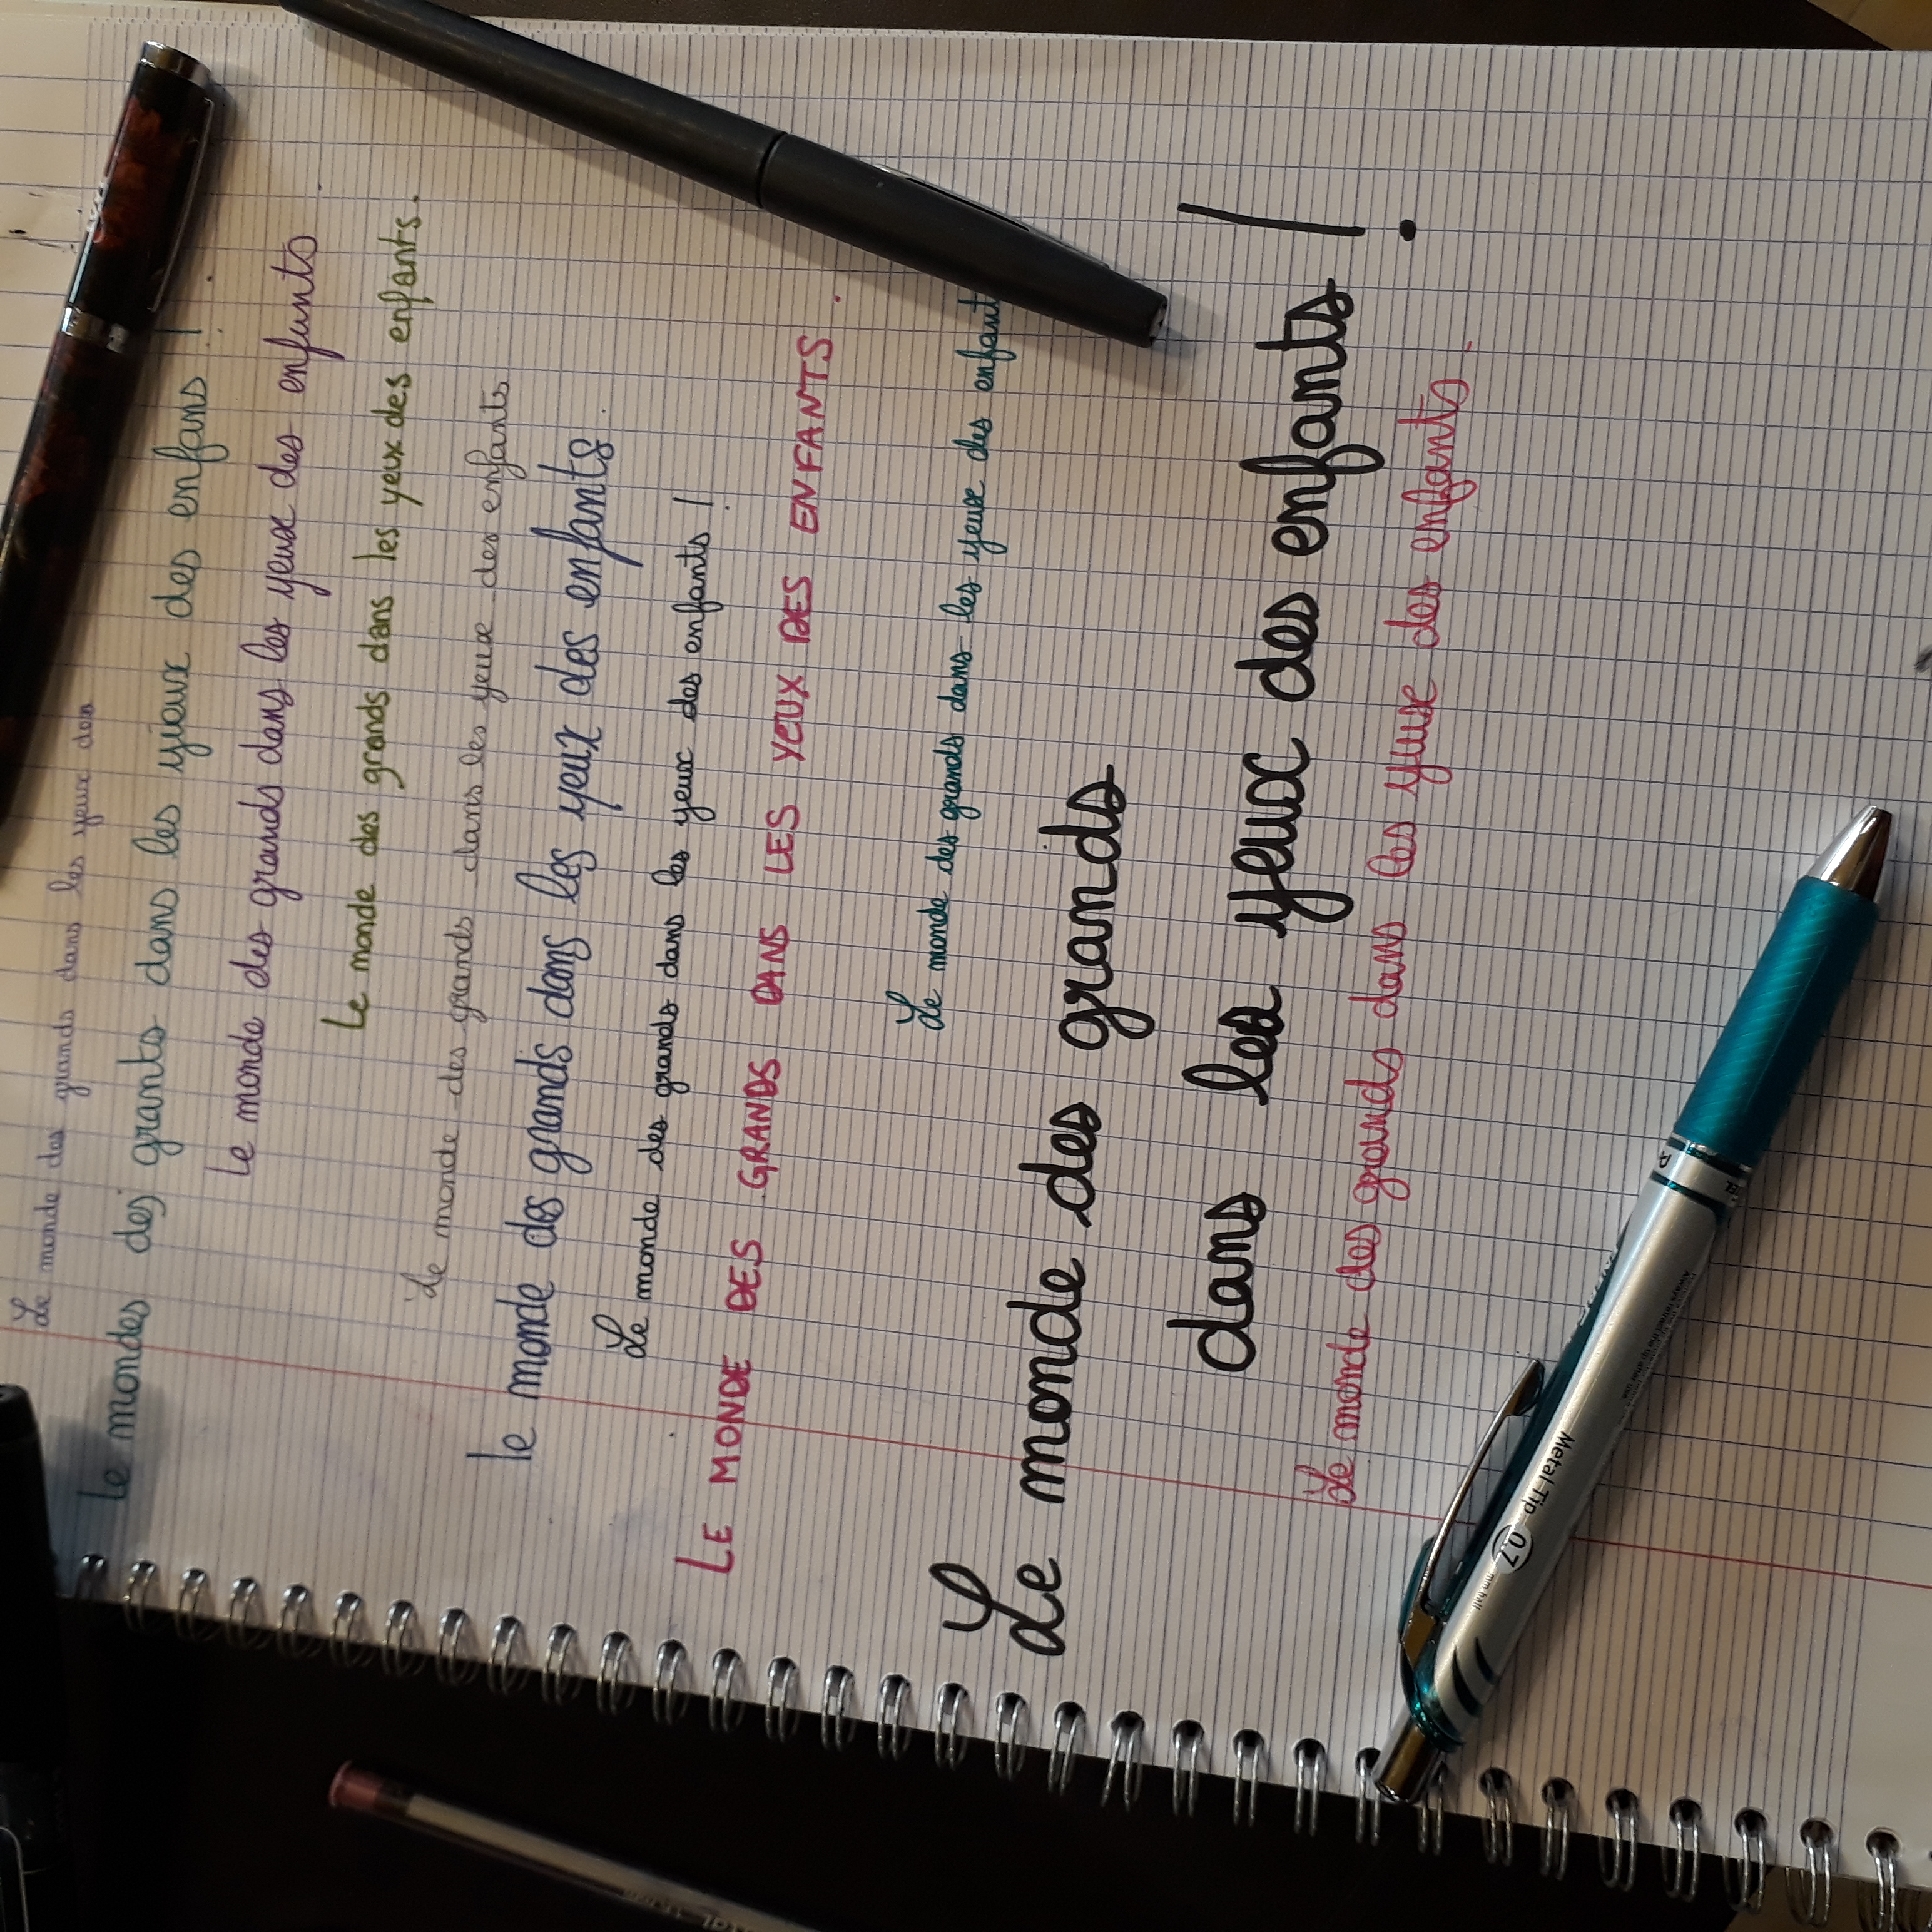 Le monde des grands dans les yeux des
le mondes des grants dans les yieux des enfans !
Le monde des grands dans les yeux des enfants
Le monde des grands dans les yeux des enfants.
Le monde des grands dans les yeux des enfants
le monde des grands dans les yeux des enfants.
Le monde des grands dans les yeux des enfants !
LE MONDE DES GRANDS DANS LES YEUX DES ENFANTS.
Le monde des grands dans les yeux des enfant
Le monde des grands
dans les yeux des enfants !
Le monde des grands dans les yeux des enfants.
Metal-Tip 0.7 mm ball